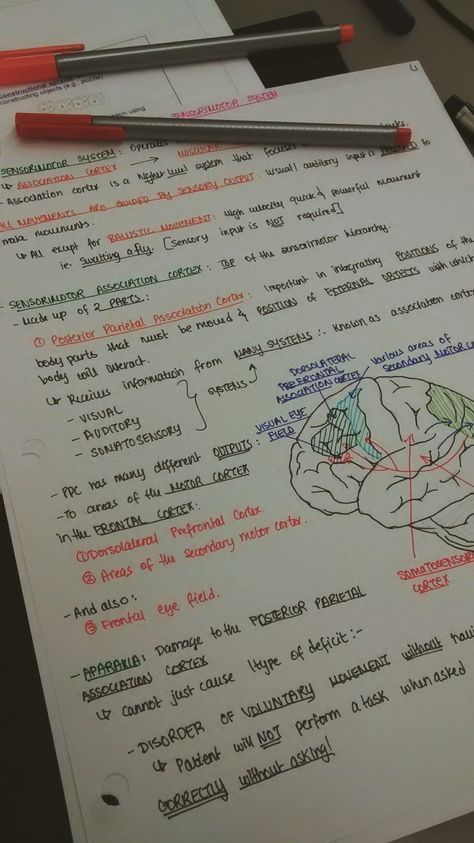 Constructional
constructing objects (e.g., puzzle)
using
SENSORIMOTOR SYSTEM
SENSORIMOTOR SYSTEM: Operates
↳ ASSOCIATION CORTEX →
- Association cortex is a Higher level system that focuses
ALL MOVEMENTS ARE GUIDED BY SENSORY OUTPUT: Visual/auditory input is to
make movements.
↳ All except for BALLISTIC MOVEMENT: High velocity, quick & powerful movement
ie: Swatting a fly. [Sensory input is NOT required]
- SENSORIMOTOR ASSOCIATION CORTEX: TOP of the sensorimotor hierarchy.
- Made up of 2 PARTS:
① Posterior Parietal Association Cortex: Important in integrating POSITIONS of the
body parts that must be moved & POSITION OF EXTERNAL OBJECTS with which
body will interact.
↳ Receives information from MANY SYSTEMS: Known as association cortex
- VISUAL
- AUDITORY
- SOMATOSENSORY
SYSTEMS
DORSOLATERAL
PREFRONTAL
ASSOCIATION CORTEX
various areas of
SECONDARY MOTOR
VISUAL EYE
FIELD
- PPC has many different OUTPUTS:
- To areas of the MOTOR CORTEX
In the FRONTAL CORTEX:
① Dorsolateral Prefrontal Cortex.
② Areas of the secondary motor cortex.
- And also:
③ Frontal eye field.
SOMATOSENSORY
CORTEX
- APARAXIA: Damage to the POSTERIOR PARIETAL
ASSOCIATION CORTEX
↳ cannot just cause 1 type of deficit:-
- DISORDER OF VOLUNTARY MOVEMENT without
↳ Patient will NOT perform a task when asked
CORRECTLY without asking!